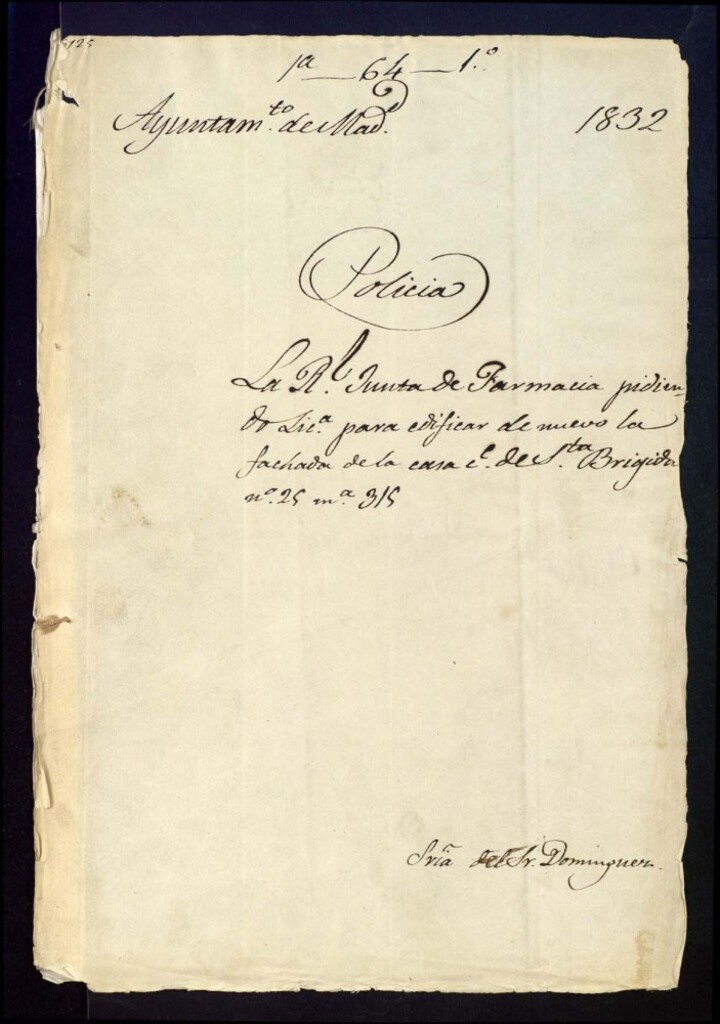 125
1ª — 64 — 1.º
Ayuntam.to de Mad.d 1832
Policia
La R.l Junta de Farmacia pidien-
do Lic.ª para edificar de nuevo la
fachada de la casa c.e de S.ta Brigida
n.º 25 m.ª 315
Sria del Sr. Dominguez.